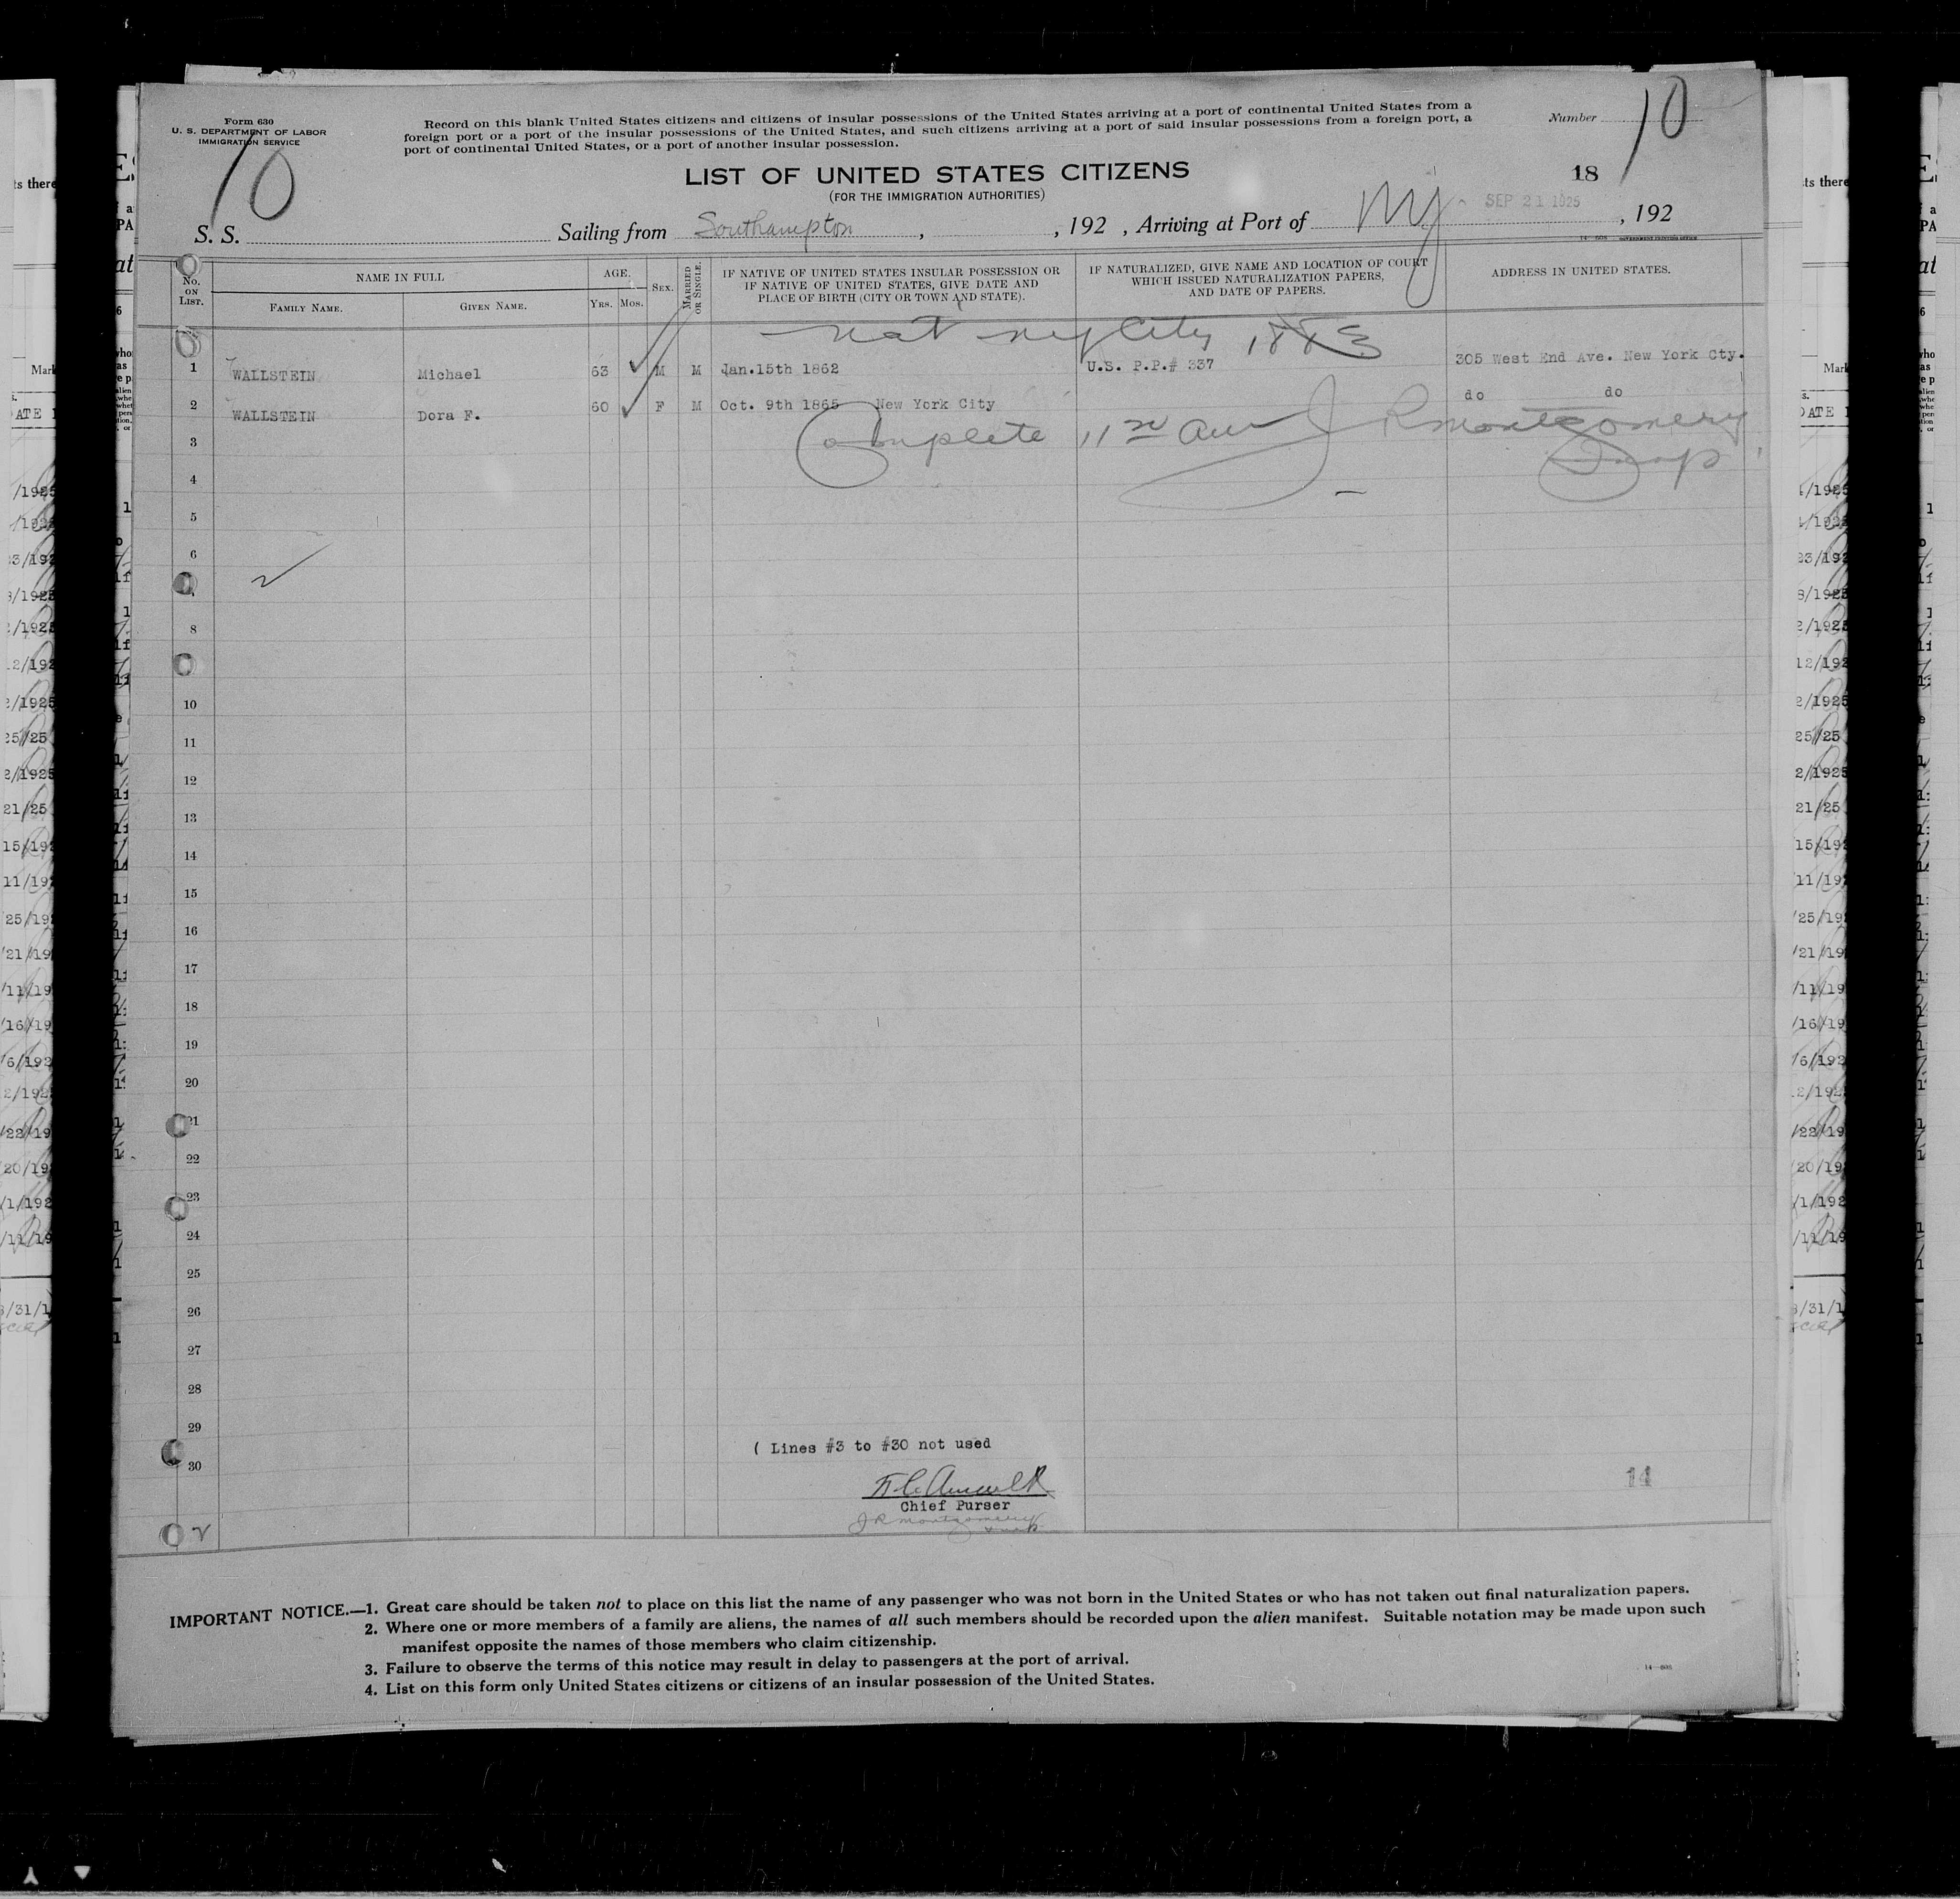 Form 630
U. S. DEPARTMENT OF LABOR
IMMIGRATION SERVICE
10
Record on this blank United States citizens and citizens of insular possessions of the United States arriving at a port of continental United States from a
foreign port or a port of the insular possessions of the United States, and such citizens arriving at a port of said insular possessions from a foreign port, a
port of continental United States, or a port of another insular possession.
Number 10
LIST OF UNITED STATES CITIZENS
18
(FOR THE IMMIGRATION AUTHORITIES)
S. S. Sailing from Southampton, , 192 , Arriving at Port of NY SEP 21 1925, 192
No. ON LIST.
NAME IN FULL
FAMILY NAME.
GIVEN NAME.
AGE.
YRS. MOS.
SEX.
MARRIED OR SINGLE.
IF NATIVE OF UNITED STATES INSULAR POSSESSION OR
IF NATIVE OF UNITED STATES, GIVE DATE AND
PLACE OF BIRTH (CITY OR TOWN AND STATE).
IF NATURALIZED, GIVE NAME AND LOCATION OF COURT
WHICH ISSUED NATURALIZATION PAPERS,
AND DATE OF PAPERS.
ADDRESS IN UNITED STATES.
Nat ny City 1883
1 WALLSTEIN Michael 63 M M Jan.15th 1862 U.S. P.P.# 337 305 West End Ave. New York Cty.
2 WALLSTEIN Dora F. 60 F M Oct. 9th 1865 New York City do do
Complete J R Montgomery
Insp
3
4
5
6
8
10
11
12
13
14
15
16
17
18
19
20
21
22
23
24
25
26
27
28
29
( Lines #3 to #30 not used
30
14
Chief Purser
J R Montgomery
Insp
IMPORTANT NOTICE.—1. Great care should be taken not to place on this list the name of any passenger who was not born in the United States or who has not taken out final naturalization papers.
2. Where one or more members of a family are aliens, the names of all such members should be recorded upon the alien manifest. Suitable notation may be made upon such
manifest opposite the names of those members who claim citizenship.
3. Failure to observe the terms of this notice may result in delay to passengers at the port of arrival.
4. List on this form only United States citizens or citizens of an insular possession of the United States.